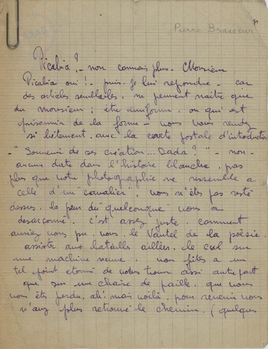 Pierre Brasseur
Picabia ? non connais plus. Monsieur
Picabia oui ! puis je lui repondre car
des articles semblables ne peuvent naitre que
du monsieur ; être uniforme ou qui est
prisonnier de la forme nous vous rendez
si bêtement, avec la carte postale d'introduction
"Souvenir de ses création... Dada ?" non
aucune date dans l'histoire blanche, pas
plus que votre photographie ne ressemble a
celle d'un cavalier. vous n'êtes pas resté
dessus. la peur du quelconque vous a
desarçonné. c'est assez juste, comment
auriez vous pu vous, le Vautel de la poésie
assister aux batailles ailleurs. le cul sur
une machine neuve vous êtes a un
tel point etonné de votre tour assi autre part
que sur une chaise de paille, que vous
vous êtes perdu. ah! mais voilà, pour revenir vous
n'avez plus retrouvé le chemin, (quelques